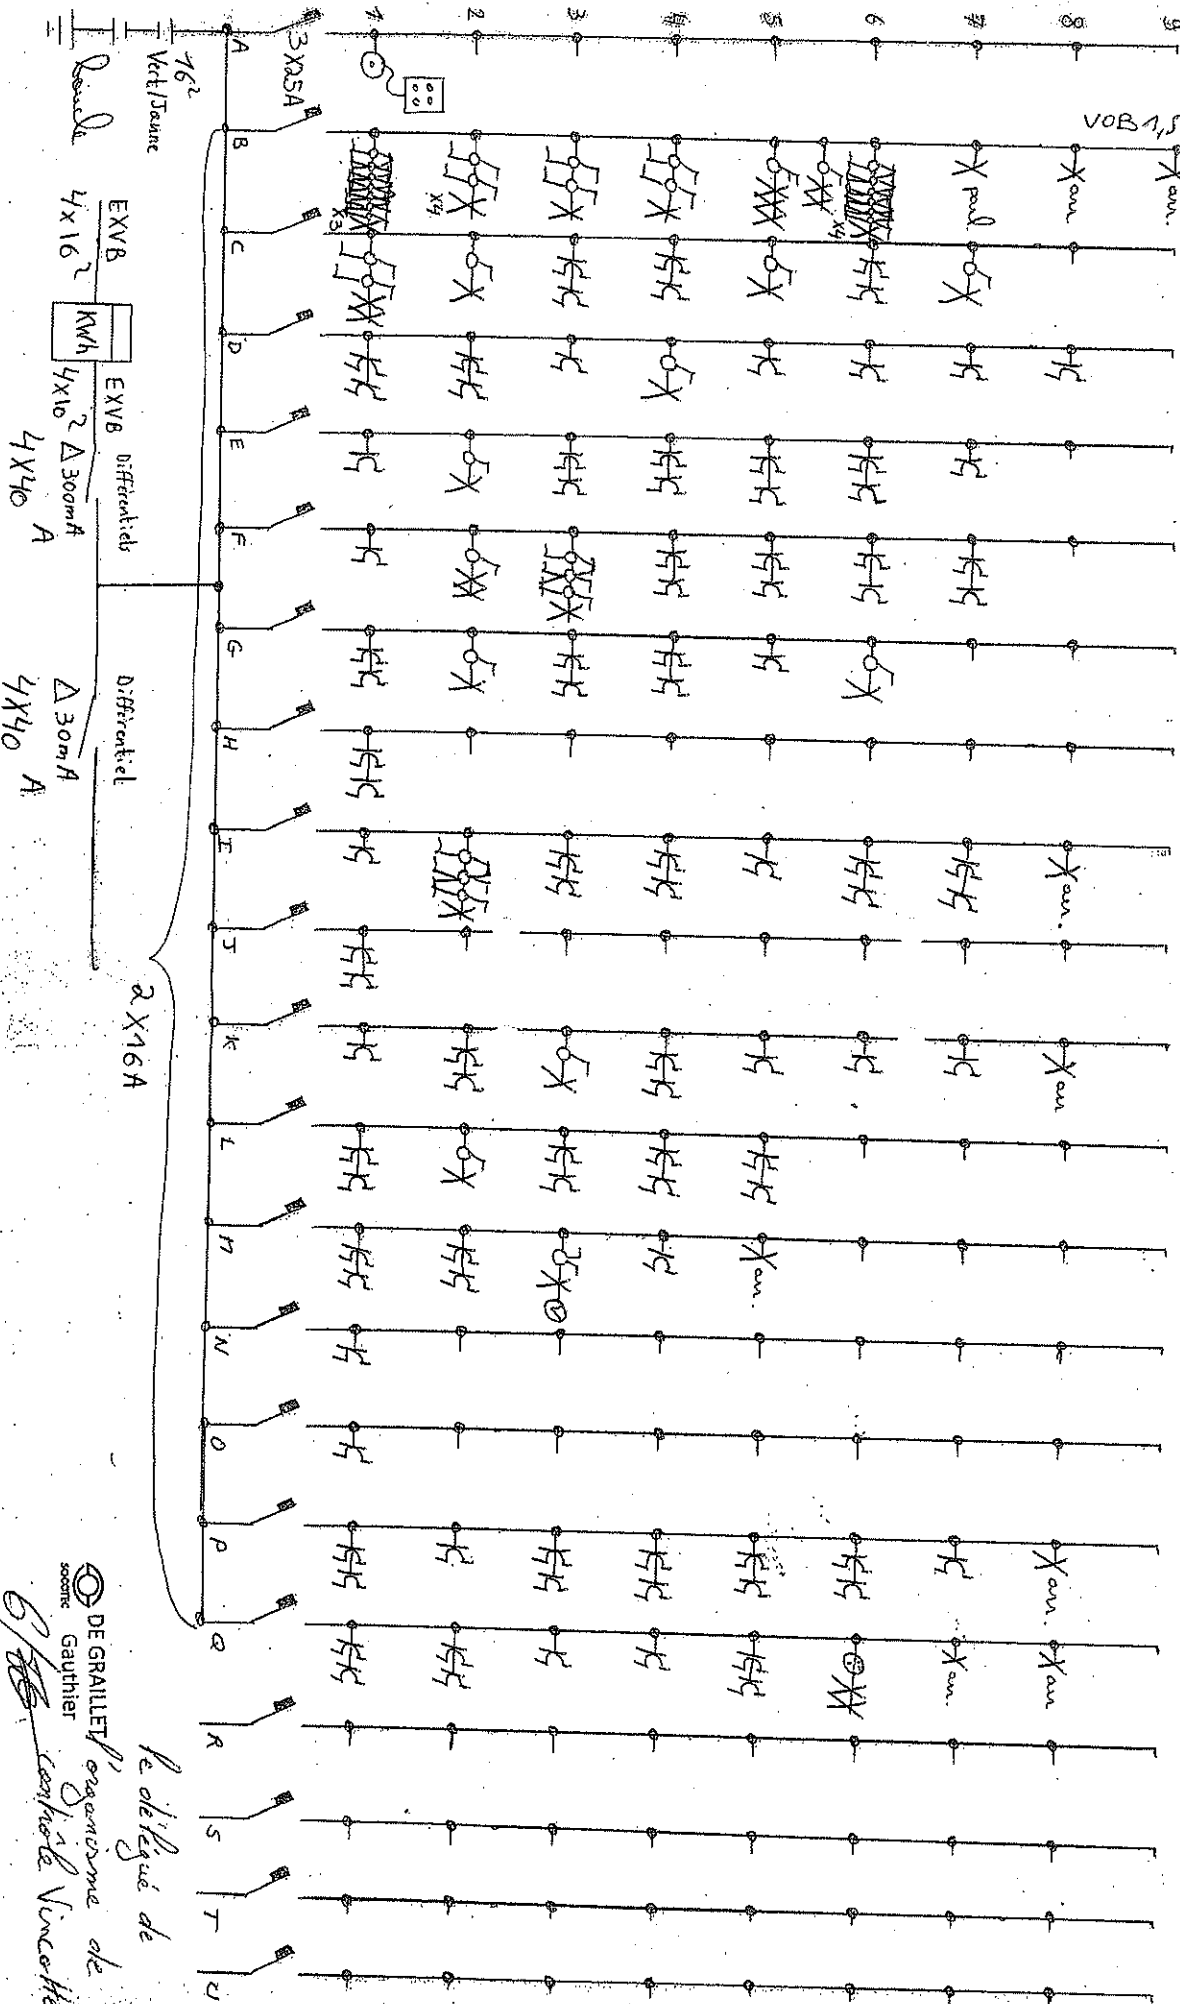 1 2 3 4 5 6 7 8 9
VOB 1,5
3X25A
A B C D E F G H I J K L M N O P Q R S T U
x3
x4
x4
paral.
arr.
arr.
arr.
arr
arr.
arr.
arr.
arr
2 X 16A
16²
Vert/Jaune
Boucle
EXVB
4x16²
KWh
EXVB
4x10²
Différentiels
Δ 300mA
4X40 A
Différentiel
Δ 30mA
4X40 A
DE GRAILLET
Gauthier
SOCOTEC
le délégué de
l'organisme de
contrôle Vincotte